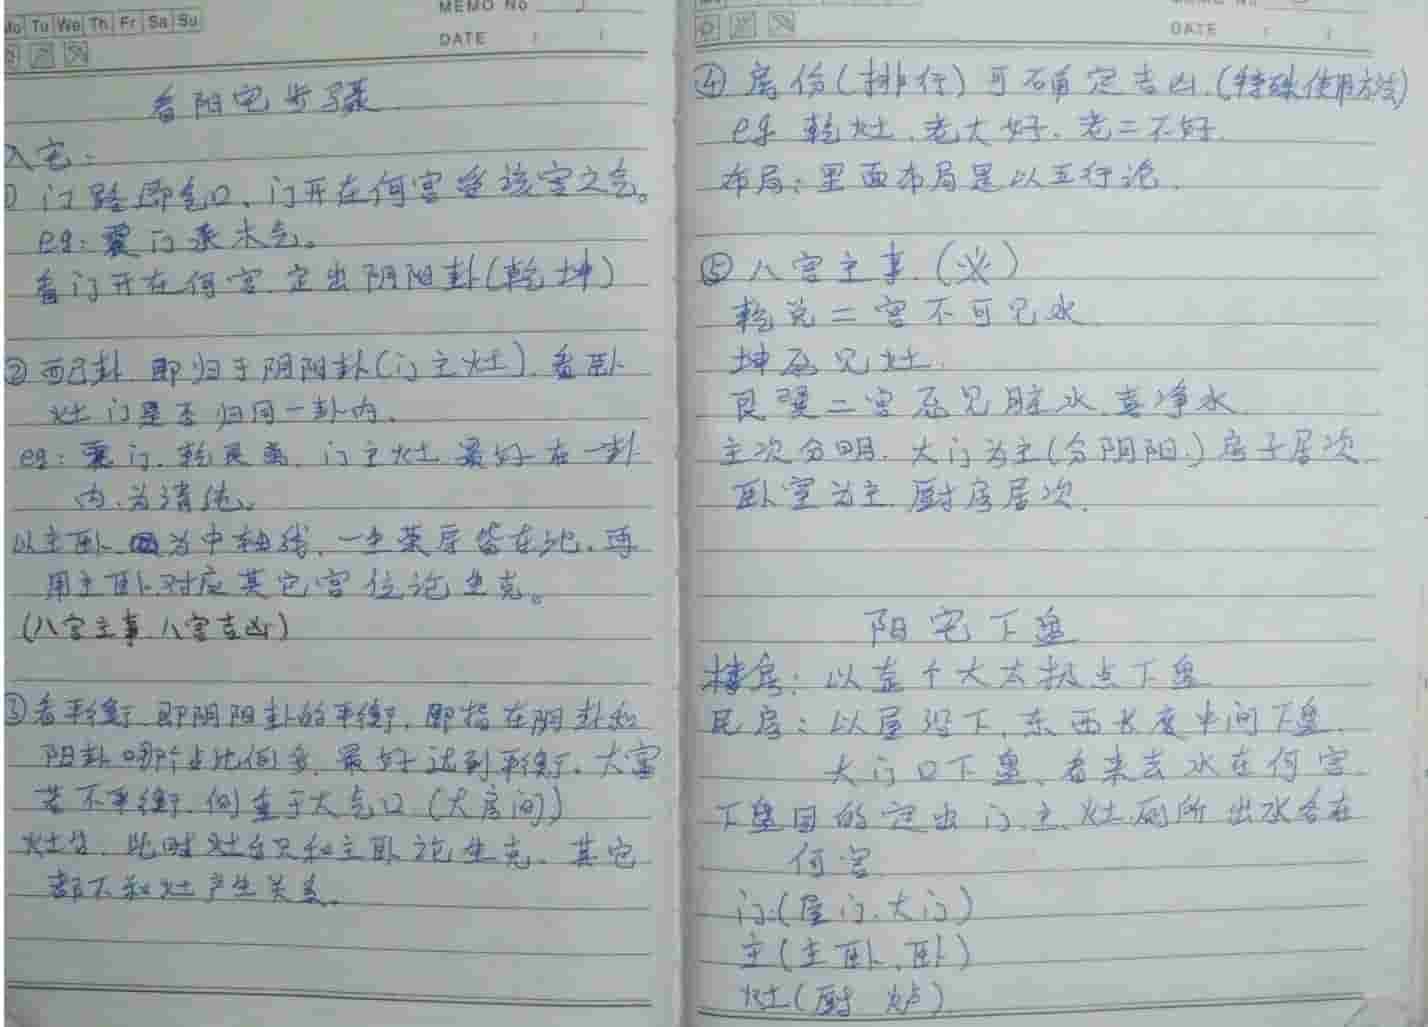 Mo Tu We Th Fr Sa Su
MEMO No
DATE / /
看阳宅步骤
入宅:
① 门路即气口、门开在何宫坐该宫之气。
eg: 震门乘木气。
看门开在何宫.定出阴阳卦(乾坤)
② 配卦 即归于阴阳卦(门主灶).看卧
灶门是否归同一卦内.
eg: 震门.乾艮离.门主灶最好在一卦
内.为清纯。
以主卧为中轴线.一生荣辱皆在此.再
用主卧对应其它宫位论生克。
(八宫主事.八宫吉凶)
③ 看平衡 即阴阳卦的平衡.即指在阴卦和
阳卦哪个占比例多.最好达到平衡.大富
若不平衡.侧重于大气口(大房间)
灶台.此时灶台只和主卧论生克.其它
都不和灶产生关系.
MEMO No
DATE / /
④ 房份(排行)可确定吉凶.(特殊使用方法)
eg 乾灶.老大好.老二不好.
布局:里面布局是以五行论.
⑤ 八宫主事.(火)
乾兑二宫不可见水
坤忌见灶.
艮巽二宫忌见脏水.喜净水
主次分明.大门为主(分阴阳.)房子居次
卧室为主.厨房居次.
阳宅下盘
楼房:以整个大太极点下盘
民房:以屋沿下.东西长度中间下盘.
大门口下盘、看来去水在何宫
下盘目的定出门.主.灶.厕所出水各在
何宫
门:(屋门.大门)
主(主卧.卧)
灶(厨 炉)